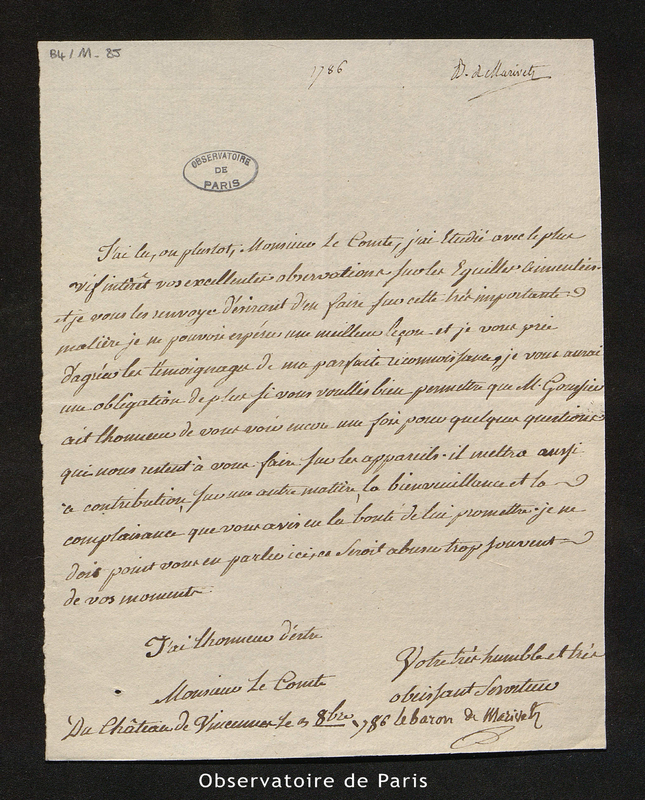 B4 / M - 85
1786
B. de Marivetz
OBSERVATOIRE
DE
PARIS
J'ai lu, ou plustot, Monsieur Le Comte, j'ai Etudié avec le plus
vif intérêt vos excellentes observations sur les Eguilles aimentées
et je vous les renvoye désirant d'en faire sur cette très importante
matière je ne pouvois espérer une meilleure leçon et je vous prie
d'agréer les témoignages de ma parfaite reconnoissance, je vous aurai
une obligation de plus si vous voullés bien permettre que M. Goussier
ait lhonneur de vous voir encore une fois pour quelques questions
qui nous restent à vous faire sur les appareils. il mettra aussi
a contribution, sur une autre matière, la bienveuillance et la
complaisance que vous avés eu la bonté de lui promettre. je ne
dois point vous en parler ici, ce seroit abuser trop souvent
de vos moments.
J'ai lhonneur d'être
Monsieur Le Comte
Votre très humble et très
obeissant Serviteur
Du Château de Vincennes le 8bre 1786 le baron de Marivetz
Observatoire de Paris